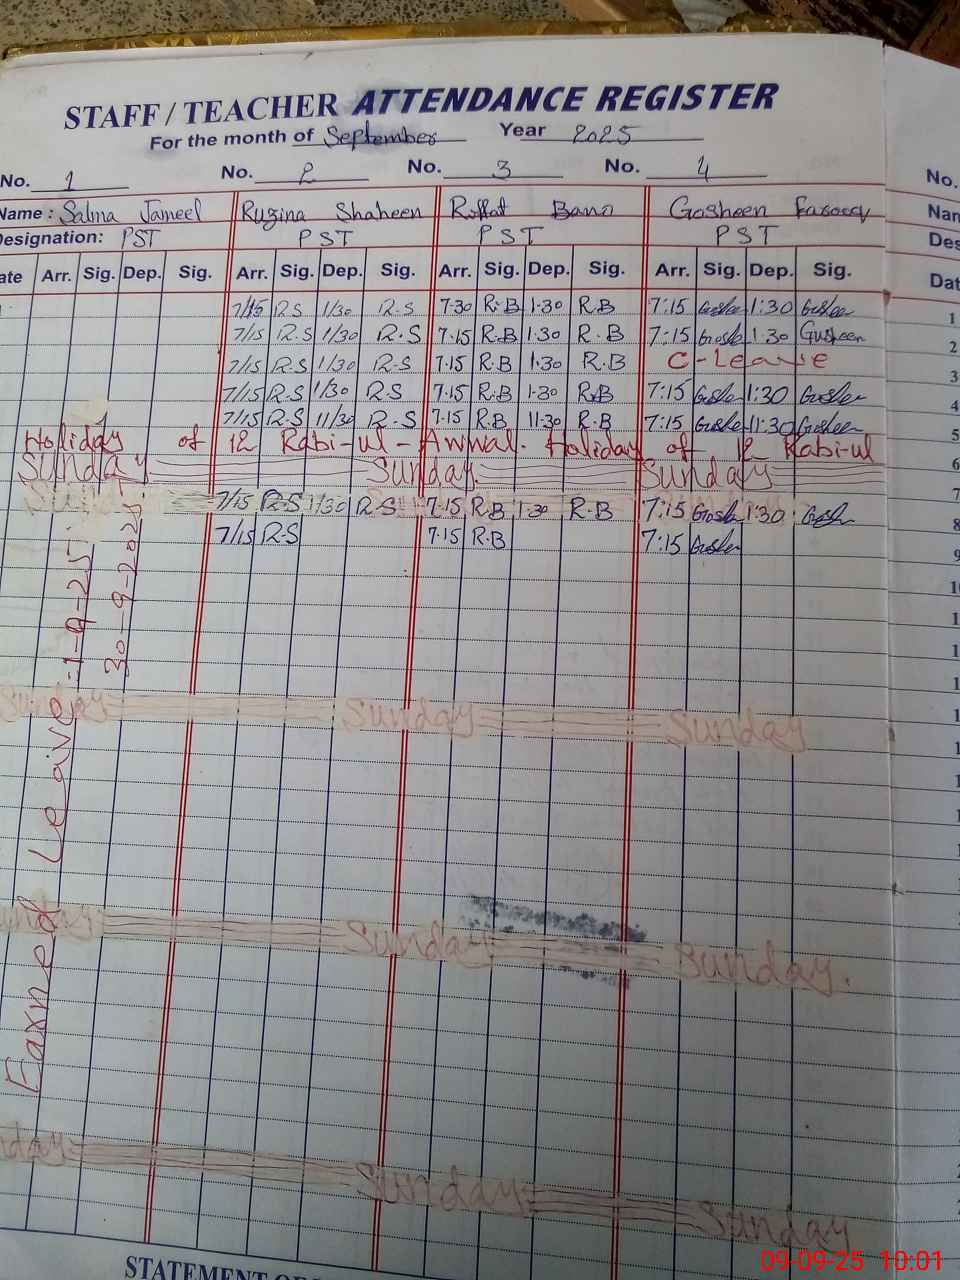 STAFF / TEACHER ATTENDANCE REGISTER
For the month of September Year 2025
No. 1 No. 2 No. 3 No. 4 No.
Name : Salma Jameel Ruzina Shaheen Riffat Bano Gosheen Farooq Nam
Designation: PST PST PST PST Des
ate Arr. Sig. Dep. Sig. Arr. Sig. Dep. Sig. Arr. Sig. Dep. Sig. Arr. Sig. Dep. Sig. Dat
7/15 R.S 1/30 R.S 7-30 R.B 1-30 R.B 7:15 Gosheen 1:30 Gosheen 1
7/15 R.S 1/30 R.S 7.15 R.B 1.30 R.B 7:15 Goshe 1.30 Gusheen 2
7/15 R.S 1/30 R.S 7.15 R.B 1.30 R.B C-Leave 3
7/15 R.S 1/30 R.S 7.15 R.B 1-30 R.B 7:15 Goshe 1:30 Gosheen 4
7/15 R.S 11/30 R.S 7.15 R.B 11.30 R.B 7:15 Goshe 11:30 Gosheen 5
Holiday of 12 Rabi-ul-Awwal. Holiday of 12 Rabi-ul 6
Sunday Sunday. Sunday 7
7/15 R.S 1/30 R.S 7.15 R.B 1.30 R.B 7:15 Goshe 1:30 Gosh 8
7/15 R.S 7.15 R.B 7:15 Goshe 9
Earned Leave 1-9-25
30-9-2025
Sunday Sunday Sunday
unday Sunday Sunday.
nday Sunday Sunday
STATEMENT O
09-09-25 10:01